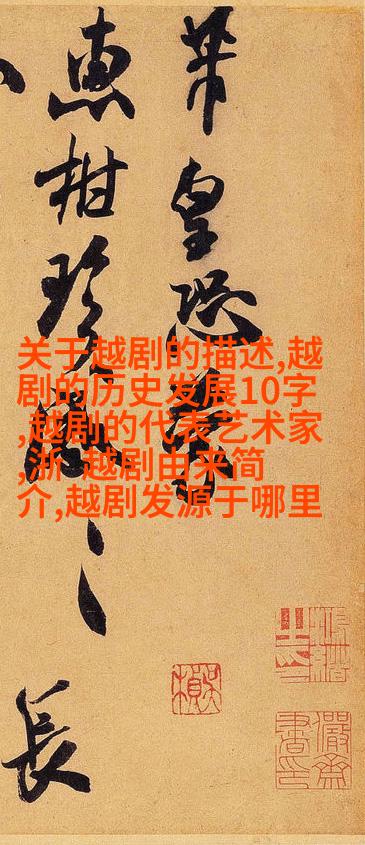 芾皇恐
惠柑珍感
長
关于越剧的描述,越
剧的历史发展10字
,越剧的代表艺术家
,浙 越剧由来简
介,越剧发源于哪里